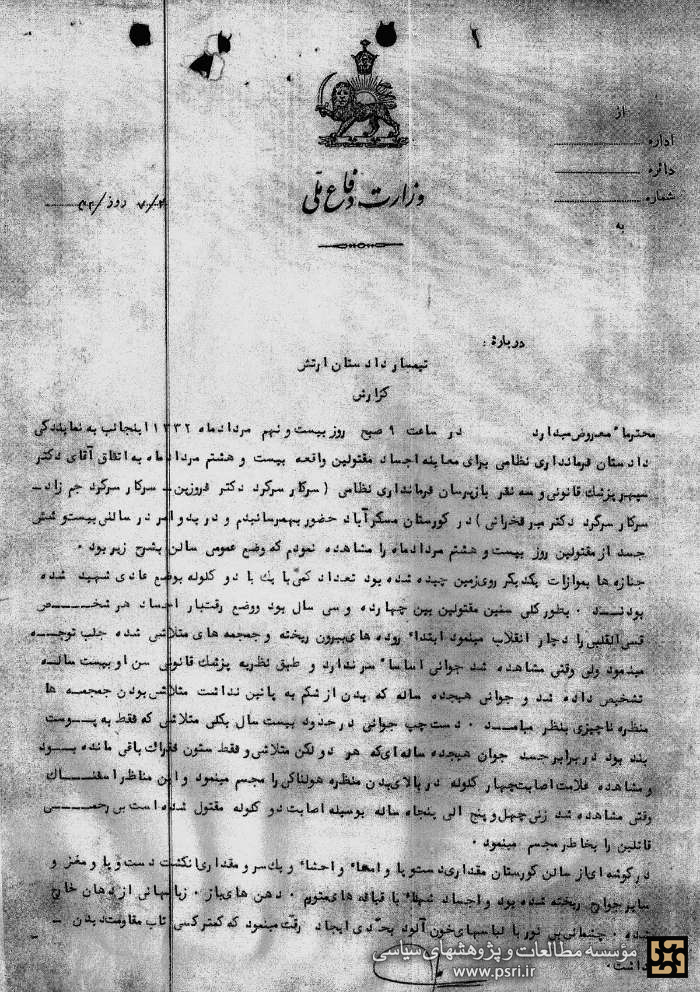 از
اداره
دائره
شماره
به
وزارت دفاع ملی
درباره :
تیمسار دادستان ارتش
گزارش
محترما" معروض میدارد در ساعت ۹ صبح روز بیست و نهم مردادماه ۱۳۳۲ اینجانب به نمایندگی
دادستان فرمانداری نظامی برای معاینه اجساد مقتولین واقعه بیست و هشتم مردادماه به اتفاق آقای دکتر
سپهر پزشک قانونی و سه نفر بازپرسان فرمانداری نظامی ( سرکار سرگرد دکتر فروزین ـ سرکار سرگرد جم زاد ـ
سرکار سرگرد دکتر میر فخرائی ) در گورستان مسگرآباد حضور بهمرسانیدم و در بدو امر در سالنی بیست و شش
جسد از مقتولین روز بیست و هشتم مردادماه را مشاهده نمودم که وضع عمومی سالن بشرح زیر بود .
جنازه ها بموازات یکدیگر روی زمین چیده شده بود تعداد کمی با یک یا دو گلوله بوضع عادی شهید شده
بودنــد . بطور کلی سنین مقتولین بین چهارده و سی سال بود ووضع رقت بار اجساد هر شخــص
قسی القلبی را دچار انقلاب مینمود ابتداء روده های بیرون ریخته و جمجمه های متلاشی شده جلب توجــه
مینمود ولی وقتی مشاهده شد جوانی اساسا" سر ندارد و طبق نظریه پزشک قانونی سن او بیست سالــه
تشخیص داده شد و جوانی هیجده ساله که بدن از شکم به پائین نداشت متلاشی بودن جمجمــه ها
منظره ناچیزی بنظر میامــد . دست چپ جوانی در حدود بیست سال بکلی متلاشی که فقط به پــوست
بند بود در برابر جسد جوان هیجده ساله ای که هر دو لگن متلاشی و فقط ستون فقرات باقی مانده بــود
و مشاهده علامت اصابت چهار گلوله در بالای بدن منظره هولناکی را مجسم مینمود و این مناظر اسفنــاک
وقتی مشاهده شد زنی چهل و پنج الی پنجاه ساله بوسیله اصابت دو گلوله مقتول شده است بی رحمــی
قاتلین را بخاطر مجسم مینمود .
در گوشه ای از سالن گورستان مقداری دست و پا و امعاء و احشاء و یک سر و مقداری انگشت دست و پا و مغز و
سایر جوارح ریخته شده بود و اجساد شهداء با قیافه های متورم . دهن های باز . زبانهائی از دهان خارج
شده . چشمانی بی نور با لباسهای خون آلود بحدی ایجاد رقت مینمود که کمتر کسی تاب مقاومت دیدن ـ
داشت .
مؤسسه مطالعات و پژوهشهای سیاسی
www.psri.ir